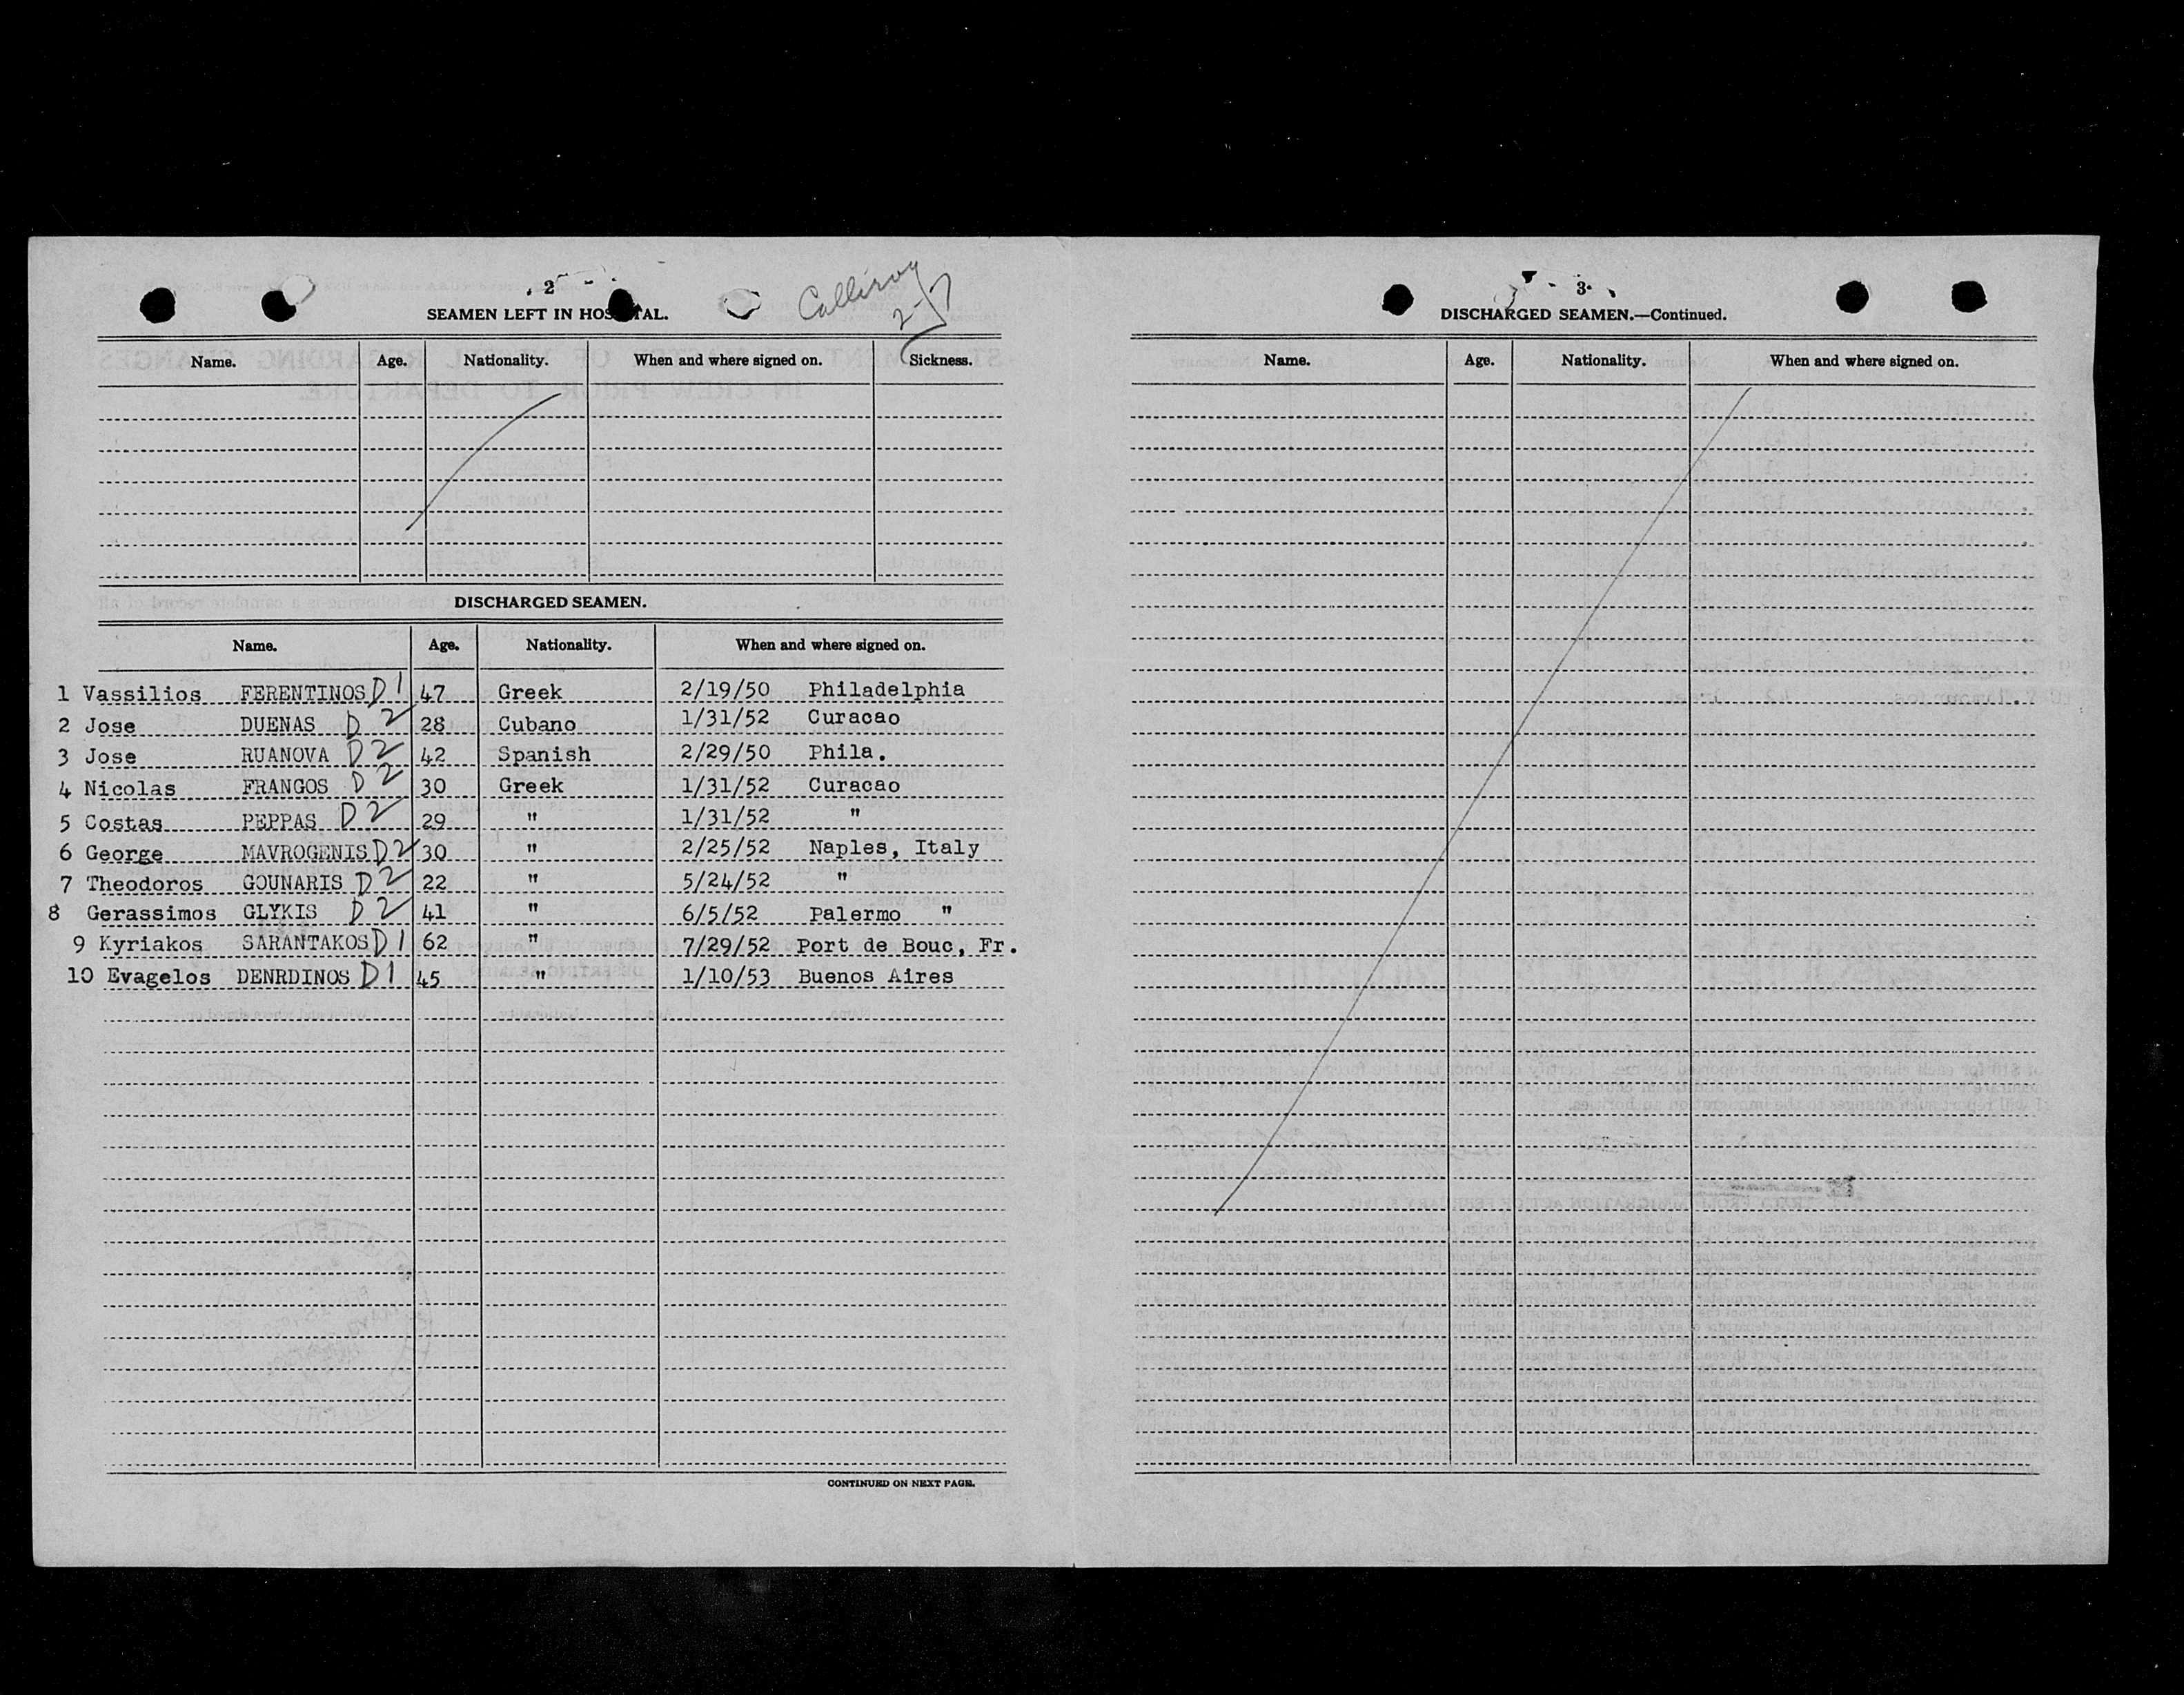 2
Calliroy
2-
SEAMEN LEFT IN HOS TAL.
Name. Age. Nationality. When and where signed on. Sickness.
DISCHARGED SEAMEN.
Name. Age. Nationality. When and where signed on.
1 Vassilios FERENTINOS D 1 47 Greek 2/19/50 Philadelphia
2 Jose DUENAS D 2 28 Cubano 1/31/52 Curacao
3 Jose RUANOVA D 2 42 Spanish 2/29/50 Phila.
4 Nicolas FRANGOS D 2 30 Greek 1/31/52 Curacao
5 Costas PEPPAS D 2 29 " 1/31/52 "
6 George MAVROGENIS D 2 30 " 2/25/52 Naples, Italy
7 Theodoros GOUNARIS D 2 22 " 5/24/52 "
8 Gerassimos GLYKIS D 2 41 " 6/5/52 Palermo "
9 Kyriakos SARANTAKOS D 1 62 " 7/29/52 Port de Bouc, Fr.
10 Evagelos DENRDINOS D 1 45 " 1/10/53 Buenos Aires
CONTINUED ON NEXT PAGE.
3
DISCHARGED SEAMEN.—Continued.
Name. Age. Nationality. When and where signed on.